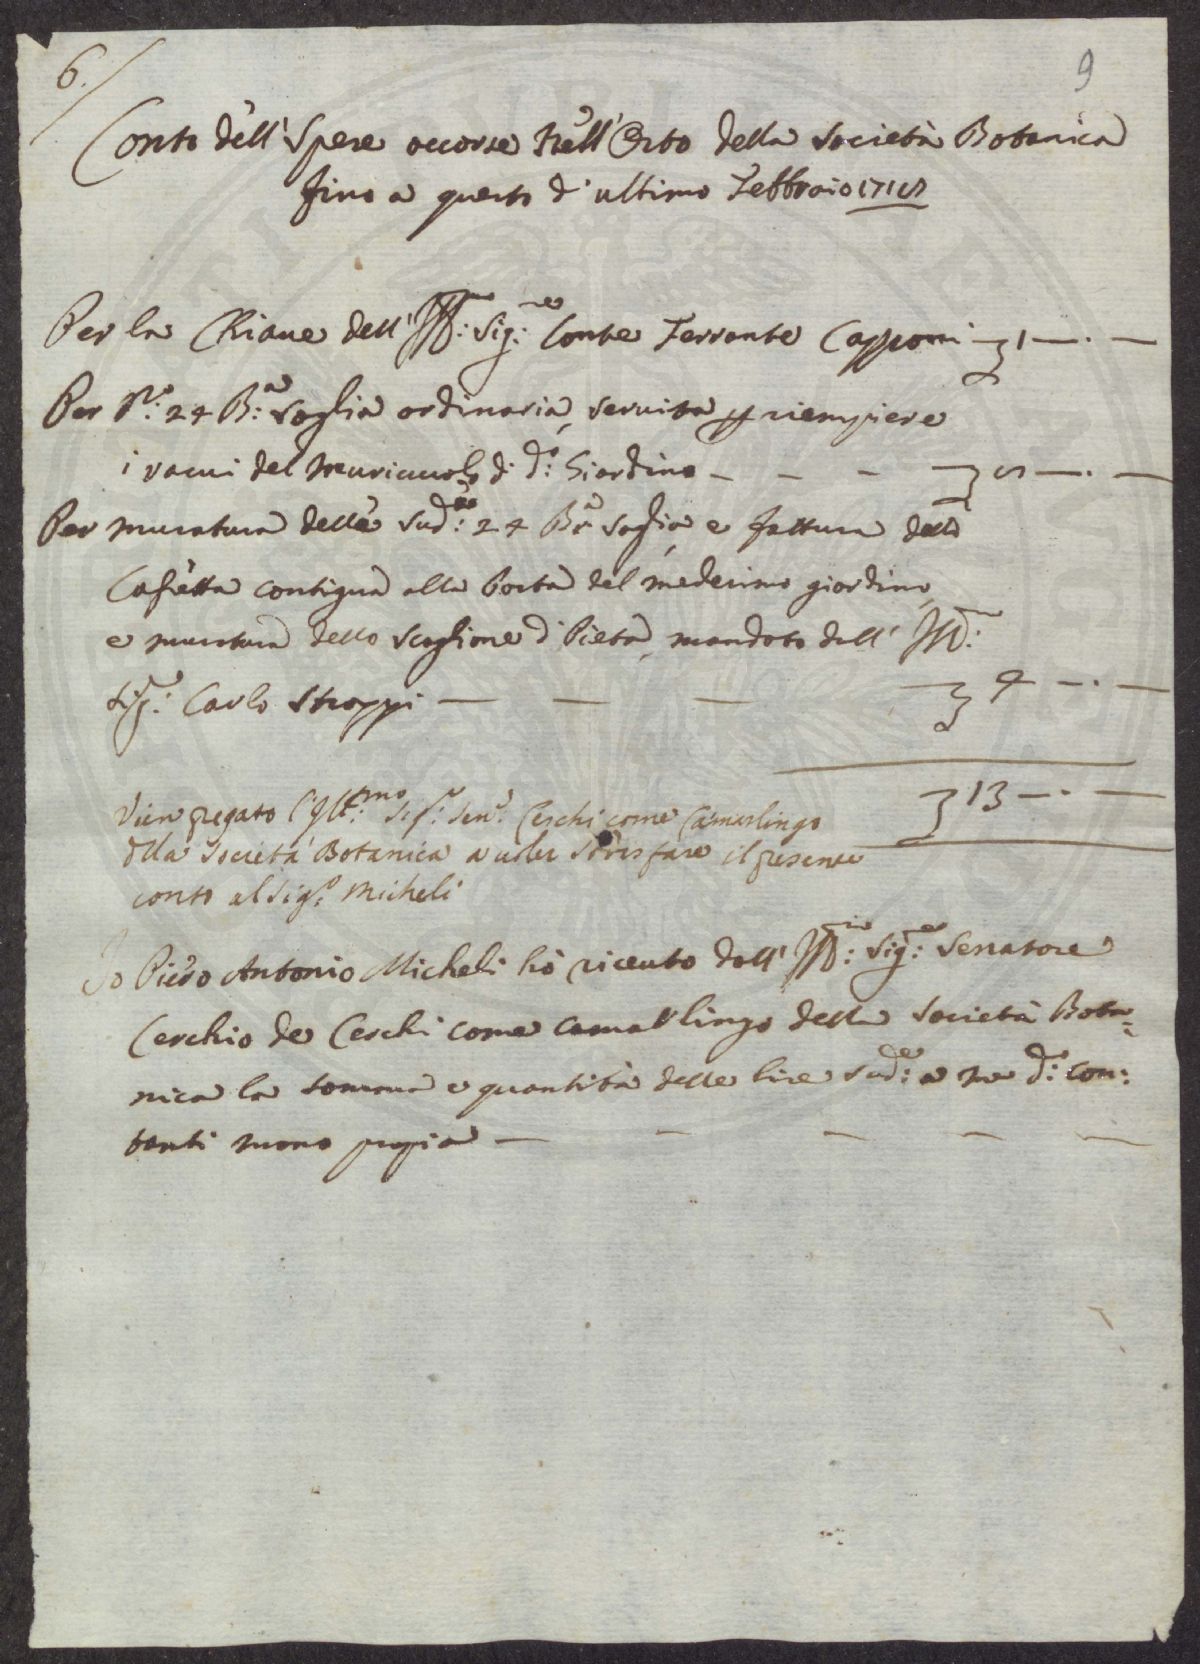 6.
9
Conto dell' Spese occorse Nell' Orto della Società Botanica
fino a questo d' ultimo Febbraio
Per la Chiave dell' Ill: Sig:re Conte Ferrante Capponi 1 — . —
Per 24 B:a soglia ordinaria, servita p riempiere
i vacui del muricciuolo di d:o Giardino — — — 5 — . —
Per muratura delle sud:e 24 B:a soglia e fattura della
Casetta contigua alla Porta del medesimo giardino,
e muratura dello scaglione d' Pietà, mandato dall' Ill:
Sig:e Carlo Stroppi — — —
13 — . —
Vien pregato l'Ill:mo Sig:r Sen:r Cerchi come Camarlingo
dlla Società Botanica a voler il presente
conto al Sig:r Micheli
Io Piero Antonio Micheli hò riceuto dall' Ill: Sig:re Senatore
Cerchio de Cerchi come Camarlingo della Società Bota=
nica la somma e quantità delle lire sud:e a me d:o con:
tanti mano propia — — — — —